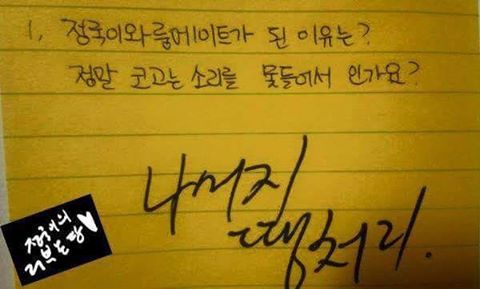 1. 정국이와 룸메이트가 된 이유는?
정말 코고는 소리를 못들어서 인가요?
나머지
땡처리.
정국이의
러브는 짱♥